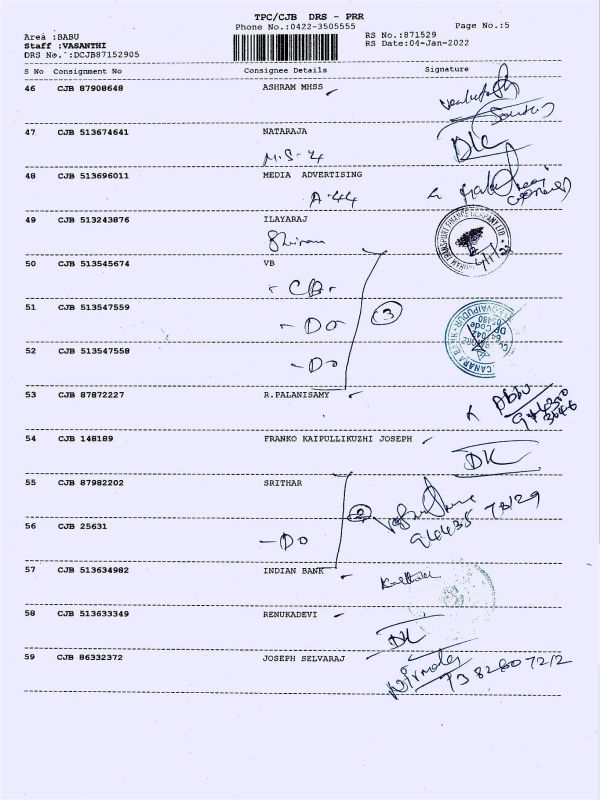 TPC/CJB DRS - PRR
Phone No.:0422-3505555
Page No.:5
Area :BABU
RS No.:871529
Staff :VASANTHI
RS Date:04-Jan-2022
DRS No. :DCJB87152905
S No Consignment No Consignee Details Signature
46 CJB 87908648 ASHRAM MHSS
47 CJB 513674641 NATARAJA
DK
M.S-4
48 CJB 513696011 MEDIA ADVERTISING
A-44
49 CJB 513243876 ILAYARAJ
50 CJB 513545674 VB
CB
51 CJB 513547559
- Do
3
52 CJB 513547558
- Do
53 CJB 87872227 R.PALANISAMY
54 CJB 148189 FRANKO KAIPULLIKUZHI JOSEPH
DK
55 CJB 87982202 SRITHAR
2
56 CJB 25631
- Do
57 CJB 513634982 INDIAN BANK
58 CJB 513633349 RENUKADEVI
DK
59 CJB 86332372 JOSEPH SELVARAJ
Nirmala